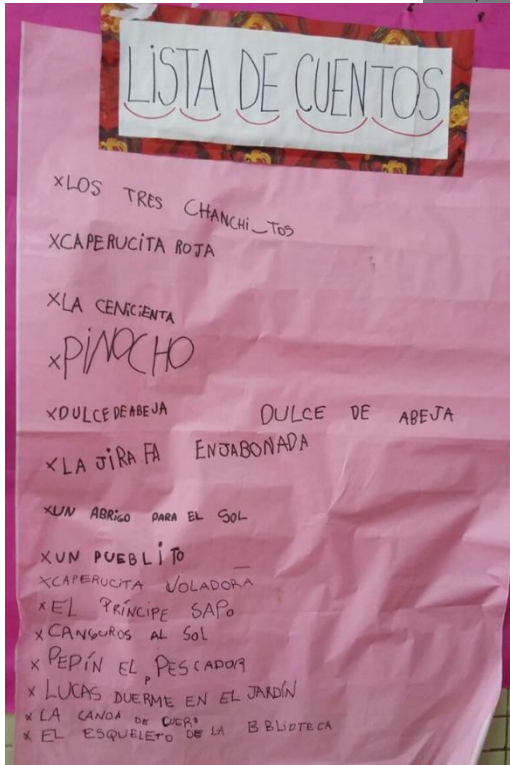 LISTA DE CUENTOS
XLOS TRES CHANCHI_TOS
XCAPERUCITA ROJA
XLA CENICIENTA
XPINOCHO
XDULCEDEABEJA DULCE DE ABEJA
XLA JIRAFA ENJABONADA
XUN ABRIGO PARA EL SOL
XUN PUEBLITO
XCAPERUCITA VOLADORA
XEL PRÍNCIPE SAPO
XCANGUROS AL SOL
X PEPÍN EL PESCADOR
X LUCAS DUERME EN EL JARDÍN
X LA CANOA DE CUERO
X EL ESQUELETO DE LA BBLIOTECA